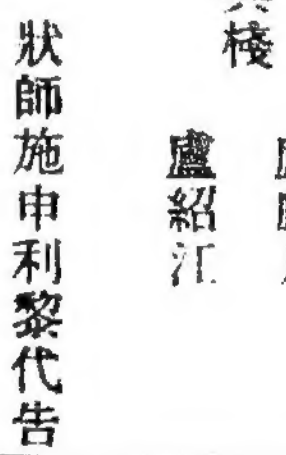 棧
盧紹江
狀師施申利黎代告